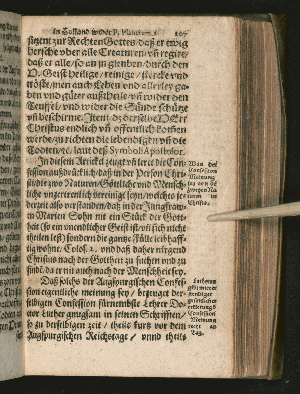 In Holland wider P. Plancium. 207
sitzent zur Rechten Gottes / daß er ewig
hersche vber alle Creaturen / vñ regire /
daß er alle / so an jn glenben / durch den
H. Geist heilige / reinige / stercke vnd
tröste / jnen auch Leben vnd allerley ga-
ben vnd güter außtheile / vñ wider den
Teuffel / vnd wider die Sünde schütze
vñ beschirme. Item / dz derselb HErr
Christus endlich vñ offentlich komẽn
werde / zu richten die lebendigen vñ die
Todten / ꝛc. laut des Symboli Apostolor.
In diesem Artickel zeugt vñ leret die Con-
fession außdrücklich / daß in der Person Chri-
sti die zwo Naturen / Göttliche vnd Mensch-
liche vnzertrenlich vereiniget seyn / welches je-
derzeit also verstanden / daß in der Jungfrawẽ
Marien Sohn nit ein Stück der Gott-
heit (so ein vnendlicher Geist ist / vñ sich nicht
theilen leßt) sondern die gantze Fülle leibhaff-
tig wohne / Coloss. 2. vnd daß daher nirgend
Christus nach der Gottheit zu suchen vnd zu
find / da er nit auch nach der Menschheit sey.
Daß solchs der Augspurgischen Confes-
sion eigentliche meinung sey / bezeuget der-
selbigen Confession fürnembste Lehrer Do-
ctor Luther gnugsam in seinen Schrifften /
so zu derselbigen zeit / theils kurtz vor dem
Augspurgischen Reichstage / vnnd theils
Was der
Confession
Meinung
sey von dẽ
zweyen Na-
turen in
Christo.
Lutherus
Confession
Meinung